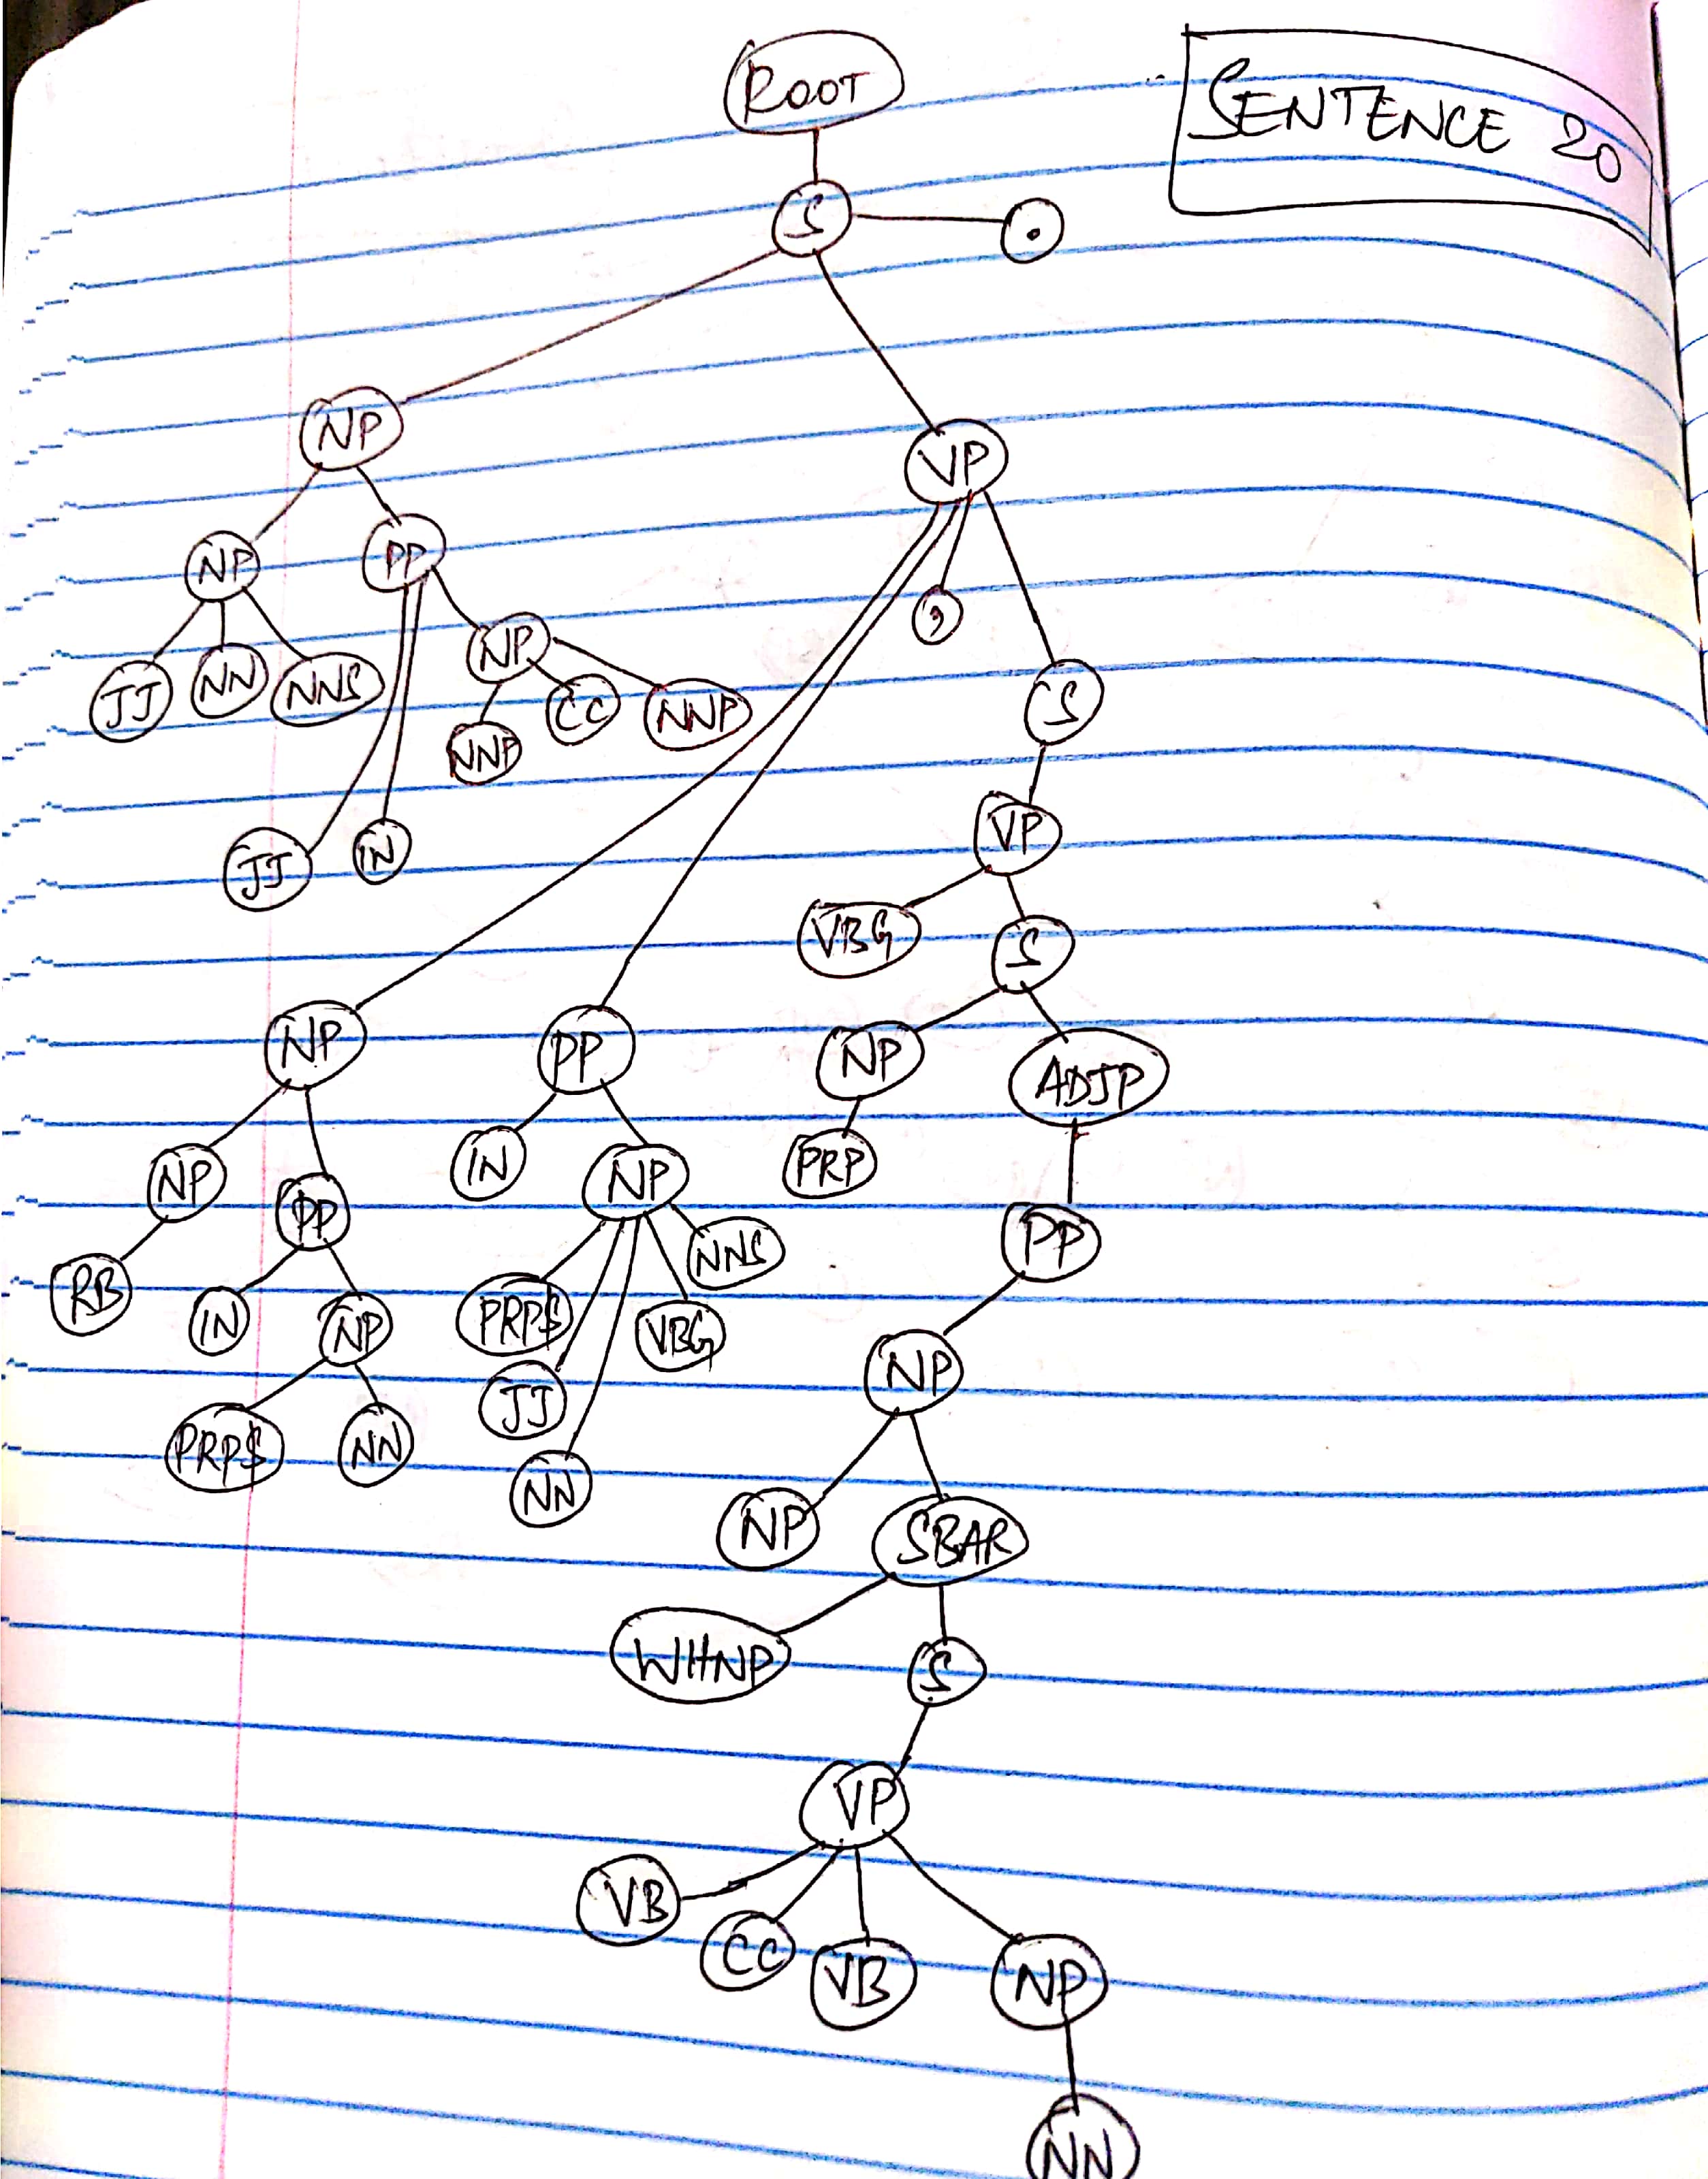 ROOT
SENTENCE 20
S .
NP VP
NP PP ,
JJ NN NNS NP CC NNP S
NNP
JJ IN VP
VBG S
NP PP NP ADJP
NP PP IN NP PRP PP
RB IN NP PRP$ VBG NNS
PRP$ NN JJ NP
NN NP SBAR
WHNP S
VP
VB CC VB NP
NN